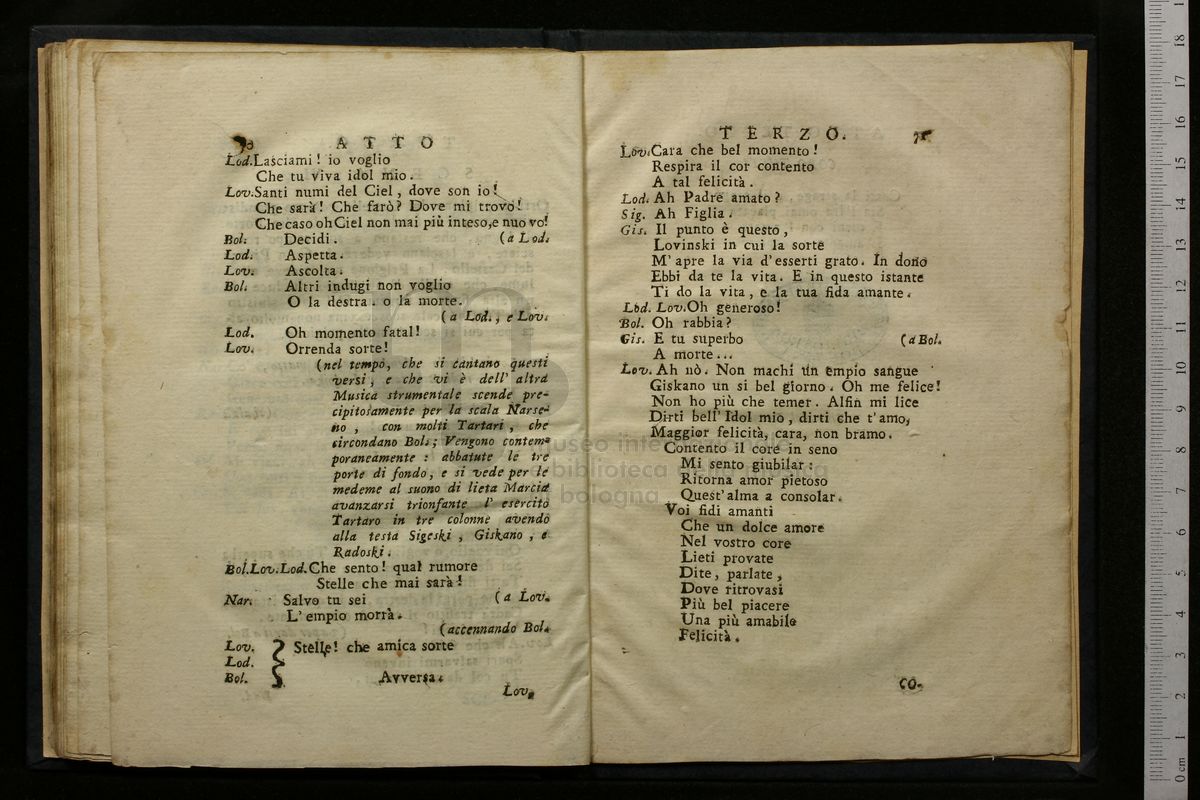 ATTO
Lod. Lasciami! io voglio
Che tu viva idol mio.
Lov. Santi numi del Ciel, dove son io!
Che sarà! Che farò? Dove mi trovo!
Che caso oh Ciel non mai più inteso, e nuovo!
Bol. Decidi. (a Lod.
Lod. Aspetta.
Lov. Ascolta.
Bol. Altri indugi non voglio
O la destra. o la morte.
(a Lod., e Lov.
Lod. Oh momento fatal!
Lov. Orrenda sorte!
(nel tempo, che si cantano questi
versi, e che vi è dell' altra
Musica strumentale scende pre-
cipitosamente per la scala Narse-
no, con molti Tartari, che
circondano Bol.; Vengono contem-
poraneamente: abbatute le tre
porte di fondo, e si vede per le
medeme al suono di lieta Marcia
avanzarsi trionfante l' esercito
Tartaro in tre colonne avendo
alla testa Sigeski, Giskano, e
Radoski.
Bol. Lov. Lod. Che sento! qual rumore
Stelle che mai sarà!
Nar. Salvo tu sei (a Lov.
L' empio morrà.
(accennando Bol.
Lov. Stelle! che amica sorte
Lod.
Bol. Avversa.
Lov.
TERZO. 71
Lov. Cara che bel momento!
Respira il cor contento
A tal felicità.
Lod. Ah Padre amato?
Sig. Ah Figlia.
Gis. Il punto è questo,
Lovinski in cui la sorte
M' apre la via d' esserti grato. In dono
Ebbi da te la vita. E in questo istante
Ti do la vita, e la tua fida amante.
Lod. Lov. Oh generoso!
Bol. Oh rabbia?
Gis. E tu superbo (a Bol.
A morte...
Lov. Ah nò. Non machi un empio sangue
Giskano un si bel giorno. Oh me felice!
Non ho più che temer. Alfin mi lice
Dirti bell' Idol mio, dirti che t' amo,
Maggior felicità, cara, non bramo.
Contento il core in seno
Mi sento giubilar:
Ritorna amor pietoso
Quest' alma a consolar.
Voi fidi amanti
Che un dolce amore
Nel vostro core
Lieti provate
Dite, parlate,
Dove ritrovasi
Più bel piacere
Una più amabile
Felicità.
CO-
museo internazionale
biblioteca della musica
bologna
0 cm 1 2 3 4 5 6 7 8 9 10 11 12 13 14 15 16 17 18